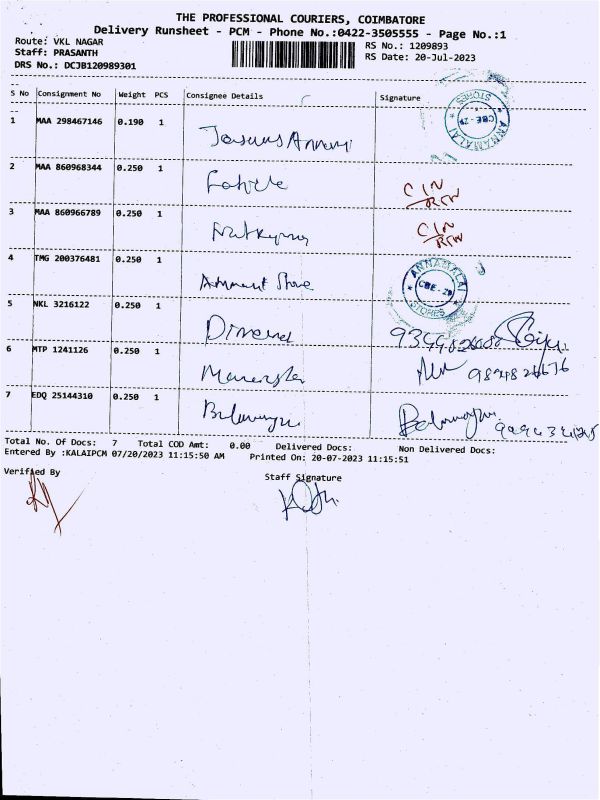 THE PROFESSIONAL COURIERS, COIMBATORE
Delivery Runsheet - PCM - Phone No.:0422-3505555 - Page No.:1
Route: VKL NAGAR
RS No.: 1209893
Staff: PRASANTH
RS Date: 20-Jul-2023
DRS No.: DCJB120989301
S No Consignment No Weight PCS Consignee Details Signature
1 MAA 298467146 0.190 1
ANNAMALAI STORES CBE-29
2 MAA 860968344 0.250 1
3 MAA 860966789 0.250 1
4 TMG 200376481 0.250 1 Store
ANNAMALAI STORES CBE-29
5 NKL 3216122 0.250 1
6 MTP 1241126 0.250 1
7 EDQ 25144310 0.250 1
Total No. Of Docs: 7 Total COD Amt: 0.00 Delivered Docs: Non Delivered Docs:
Entered By :KALAIPCM 07/20/2023 11:15:50 AM Printed On: 20-07-2023 11:15:51
Verified By Staff Signature